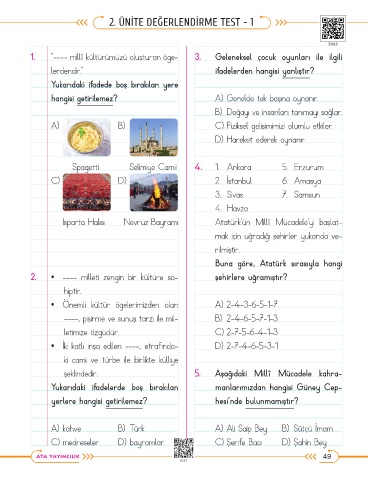 2. ÜNİTE DEĞERLENDİRME TEST - 1
1. "---- millî kültürümüzü oluşturan öge-
lerdendir."
Yukarıdaki ifadede boş bırakılan yere
hangisi getirilemez?
A)
B)
Spagetti
Selimiye Cami
C)
D)
Isparta Halısı
Nevruz Bayramı
2. • ---- milleti zengin bir kültüre sa-
hiptir.
• Önemli kültür ögelerimizden olan
----, pişirme ve sunuş tarzı ile mil-
letimize özgüdür.
• İki katlı inşa edilen ----, etrafında-
ki cami ve türbe ile birlikte külliye
şeklindedir.
Yukarıdaki ifadelerde boş bırakılan
yerlere hangisi getirilemez?
A) kahve
B) Türk
C) medreseler
D) bayramlar
3. Geleneksel çocuk oyunları ile ilgili
ifadelerden hangisi yanlıştır?
A) Genelde tek başına oynanır.
B) Doğayı ve insanları tanımayı sağlar.
C) Fiziksel gelişimimizi olumlu etkiler.
D) Hareket ederek oynanır.
4. 1. Ankara 5. Erzurum
2. İstanbul 6. Amasya
3. Sivas 7. Samsun
4. Havza
Atatürk'ün Millî Mücadele'yi başlat-
mak için uğradığı şehirler yukarıda ve-
rilmiştir.
Buna göre, Atatürk sırasıyla hangi
şehirlere uğramıştır?
A) 2-4-3-6-5-1-7
B) 2-4-6-5-7-1-3
C) 2-7-5-6-4-1-3
D) 2-7-4-6-5-3-1
5. Aşağıdaki Millî Mücadele kahra-
manlarımızdan hangisi Güney Cep-
hesi'nde bulunmamıştır?
A) Ali Saip Bey
B) Sütçü İmam
C) Şerife Bacı
D) Şahin Bey
ATA YAYINCILIK
49